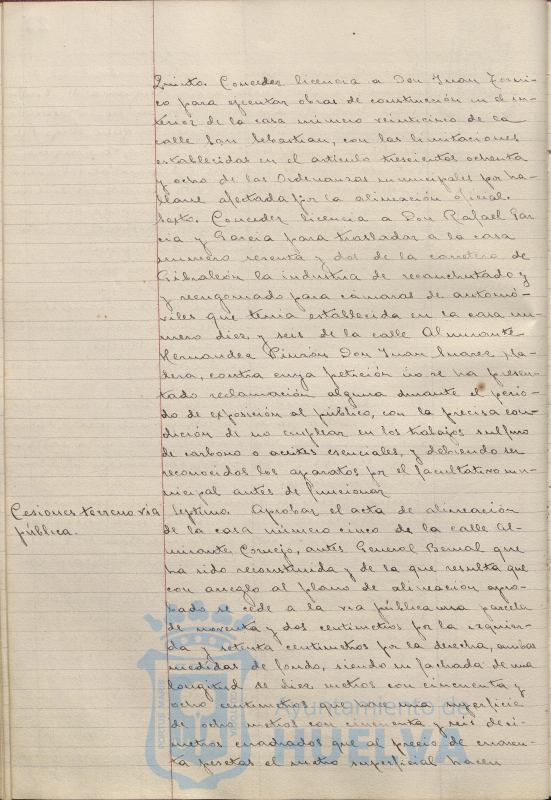 Quinto. Conceder licencia a Don Juan Formi-
co para ejecutar obras de construcción en el in-
terior de la casa número veinticinco de la
calle San Sebastian, con las limitaciones
establecidas en el artículo trescientos ochenta
y ocho de las Ordenanzas municipales por ha-
llarse afectada por la alineación oficial.
Sexto. Conceder licencia a Don Rafael Gar
cia y Garcia para trasladar a la casa
numero sesenta y dos de la carretera de
Gibraleón la industria de recauchutado y
y reengomado para cámaras de automó-
viles que tenia establecida en la casa nú-
mero diez y seis de la calle Almirante
Hernandez Pinzón Don Juan Suarez
dera, contra cuya petición no se ha presen-
tado reclamación alguna durante el perio-
do de exposición al público, con la precisa con-
dición de no emplear en los trabajos sulfuro
de carbono o aceites esenciales, y debiendo ser
reconocidos los aparatos por el facultativo mu-
nicipal antes de funcionar
Cesiones terreno via
pública.
Septimo. Aprobar el acta de alineación
de la casa número cinco de la calle Al-
mirante Cornejo, antes General Bernal que
ha sido reconstruida y de la que resulta que
con arreglo al plano de alineacion apro-
bado se cede a la via pública una parcela
de noventa y dos centimetros por la izquier-
da y setenta centimetros por la derecha, ambas
medidas de fondo, siendo su fachada de una
longitud de diez metros con cincuenta y
ocho centimetros que hace una superficie
de ocho metros con cincuenta y seis deci-
metros cuadrados que al precio de cuaren-
ta pesetas el metro superficial hacen
PORTUS MARIS
Ayuntamiento de
HUELVA